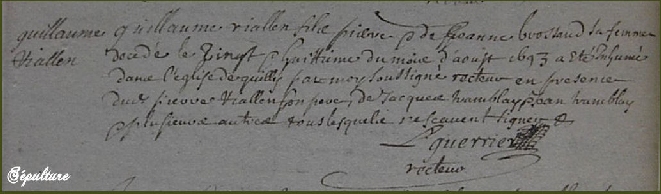 guillaume viallen
guillaume viallen filz pierre & de Jeanne brossaud sa femme
decede le vingt & huittime du mois d'aoust 1693 a ete Inhume
dans l'eglise de quilly par moy soussigné recteur en presence
dud pierre viallen son pere, de Jacques tramblay, Jean tramblay
& plusieurs autres tous lesquels ne scavent signer
L guerrier
recteur
Sépulture